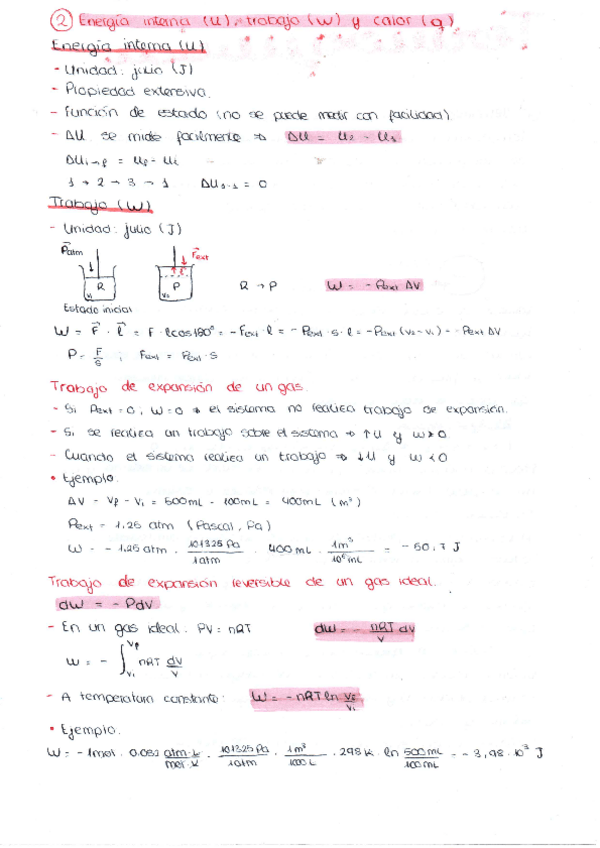 ② Energía interna (U), trabajo (W) y calor (q)
Energía interna (U)
- Unidad: julio (J)
- Propiedad extensiva.
- Función de estado (no se puede medir con facilidad).
- ΔU se mide facilmente ⇒ ΔU = U₂ - U₁
ΔUi→f = Uf - Ui
1 → 2 → 3 → 1 ΔU₁₋₁ = 0
Trabajo (W)
- Unidad: julio (J)
Patm Fext
R P R → P W = - Pext ΔV
V₁ V₂
Estado inicial
W = F · l = F · l cos 180º = - Fext · l = - Pext · s · l = - Pext (V₂ - V₁) = - Pext ΔV
P = F/S ; Fext = Pext · s
Trabajo de expansión de un gas.
- Si Pext = 0, W = 0 → el sistema no realiza trabajo de expansión.
- Si se realiza un trabajo sobre el sistema ⇒ ↑U y W > 0.
- Cuando el sistema realiza un trabajo ⇒ ↓U y W < 0
• Ejemplo.
ΔV = Vf - Vi = 500mL - 100mL = 400mL (m³)
Pext = 1.25 atm (Pascal, Pa)
W = - 1.25 atm · 101325 Pa/1 atm · 400 mL · 1m³/10⁶ mL = - 50,7 J
Trabajo de expansión reversible de un gas ideal.
dW = - PdV
- En un gas ideal. PV = nRT dW = - nRT/V dV
W = - ∫ Vi Vf nRT dV/V
- A temperatura constante: W = - nRT ln Vf/Vi
• Ejemplo.
W = - 1mol · 0.082 atm·L/mol·K · 101325 Pa/1 atm · 1m³/1000 L · 298 K · ln 500 mL/100 mL = - 3,98 · 10³ J